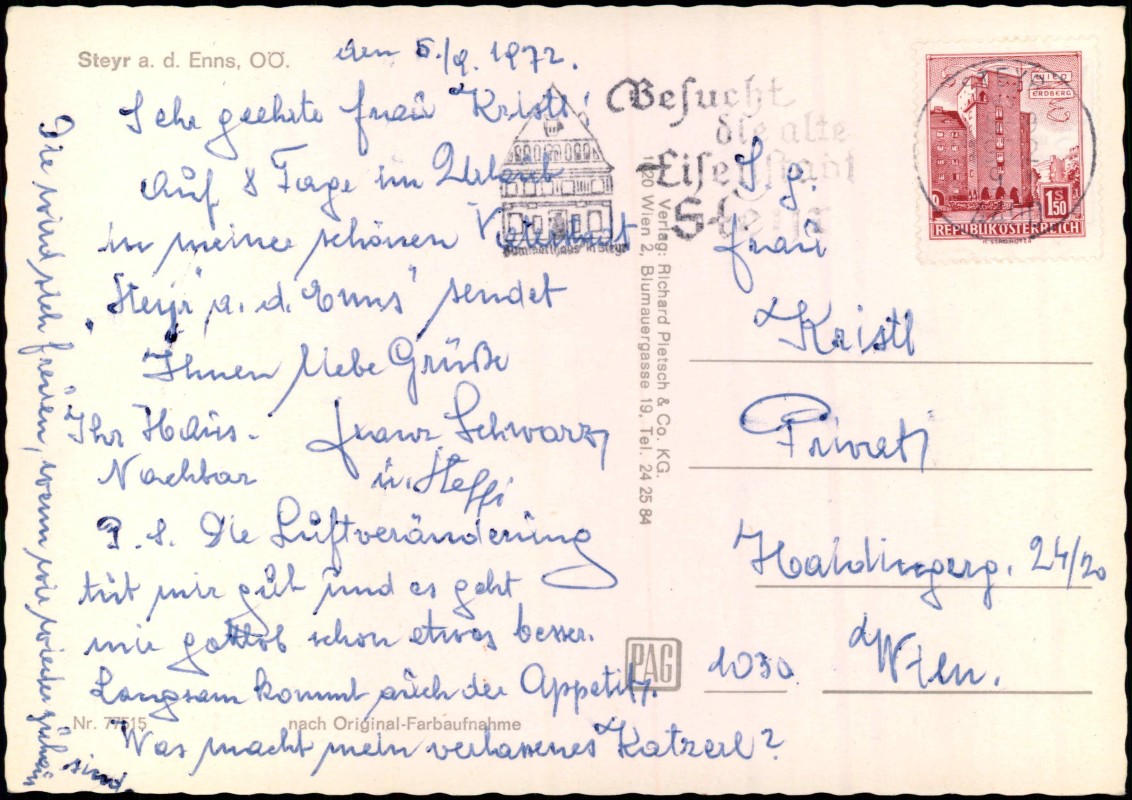 Steyr a. d. Enns, OÖ.
den 5./9. 1972.
Sehr geehrte Frau Kristl!
Auf 8 Tage im Urlaub
in meiner schönen Vaterstadt
"Steyr" a. d. "Enns" sendet
Ihnen liebe Grüße
Ihr Haus-
Nachbar
Franz Schwarz
u. Steffi
P. S. Die Luftveränderung
tut mir gut und es geht
mir gottlob schon etwas besser.
Langsam kommt auch der Appetit.
Was macht mein verlassenes Katzerl?
Die wird sich freuen, wenn wir wieder zuhaus
sind.
Nr. 77515
nach Original-Farbaufnahme
Besucht
die alte
Eisenstadt
Steyr
"Bummerlhaus" in Steyr
Verlag: Richard Pietsch & Co. KG.
1120 Wien 2, Blumauergasse 19, Tel. 24 25 84
PAG
WIEN
ERDBERG
S
1.50
REPUBLIK ÖSTERREICH
S. g.
Frau
Kristl
Privat
Haidingerg. 24/20
1030
Wien.